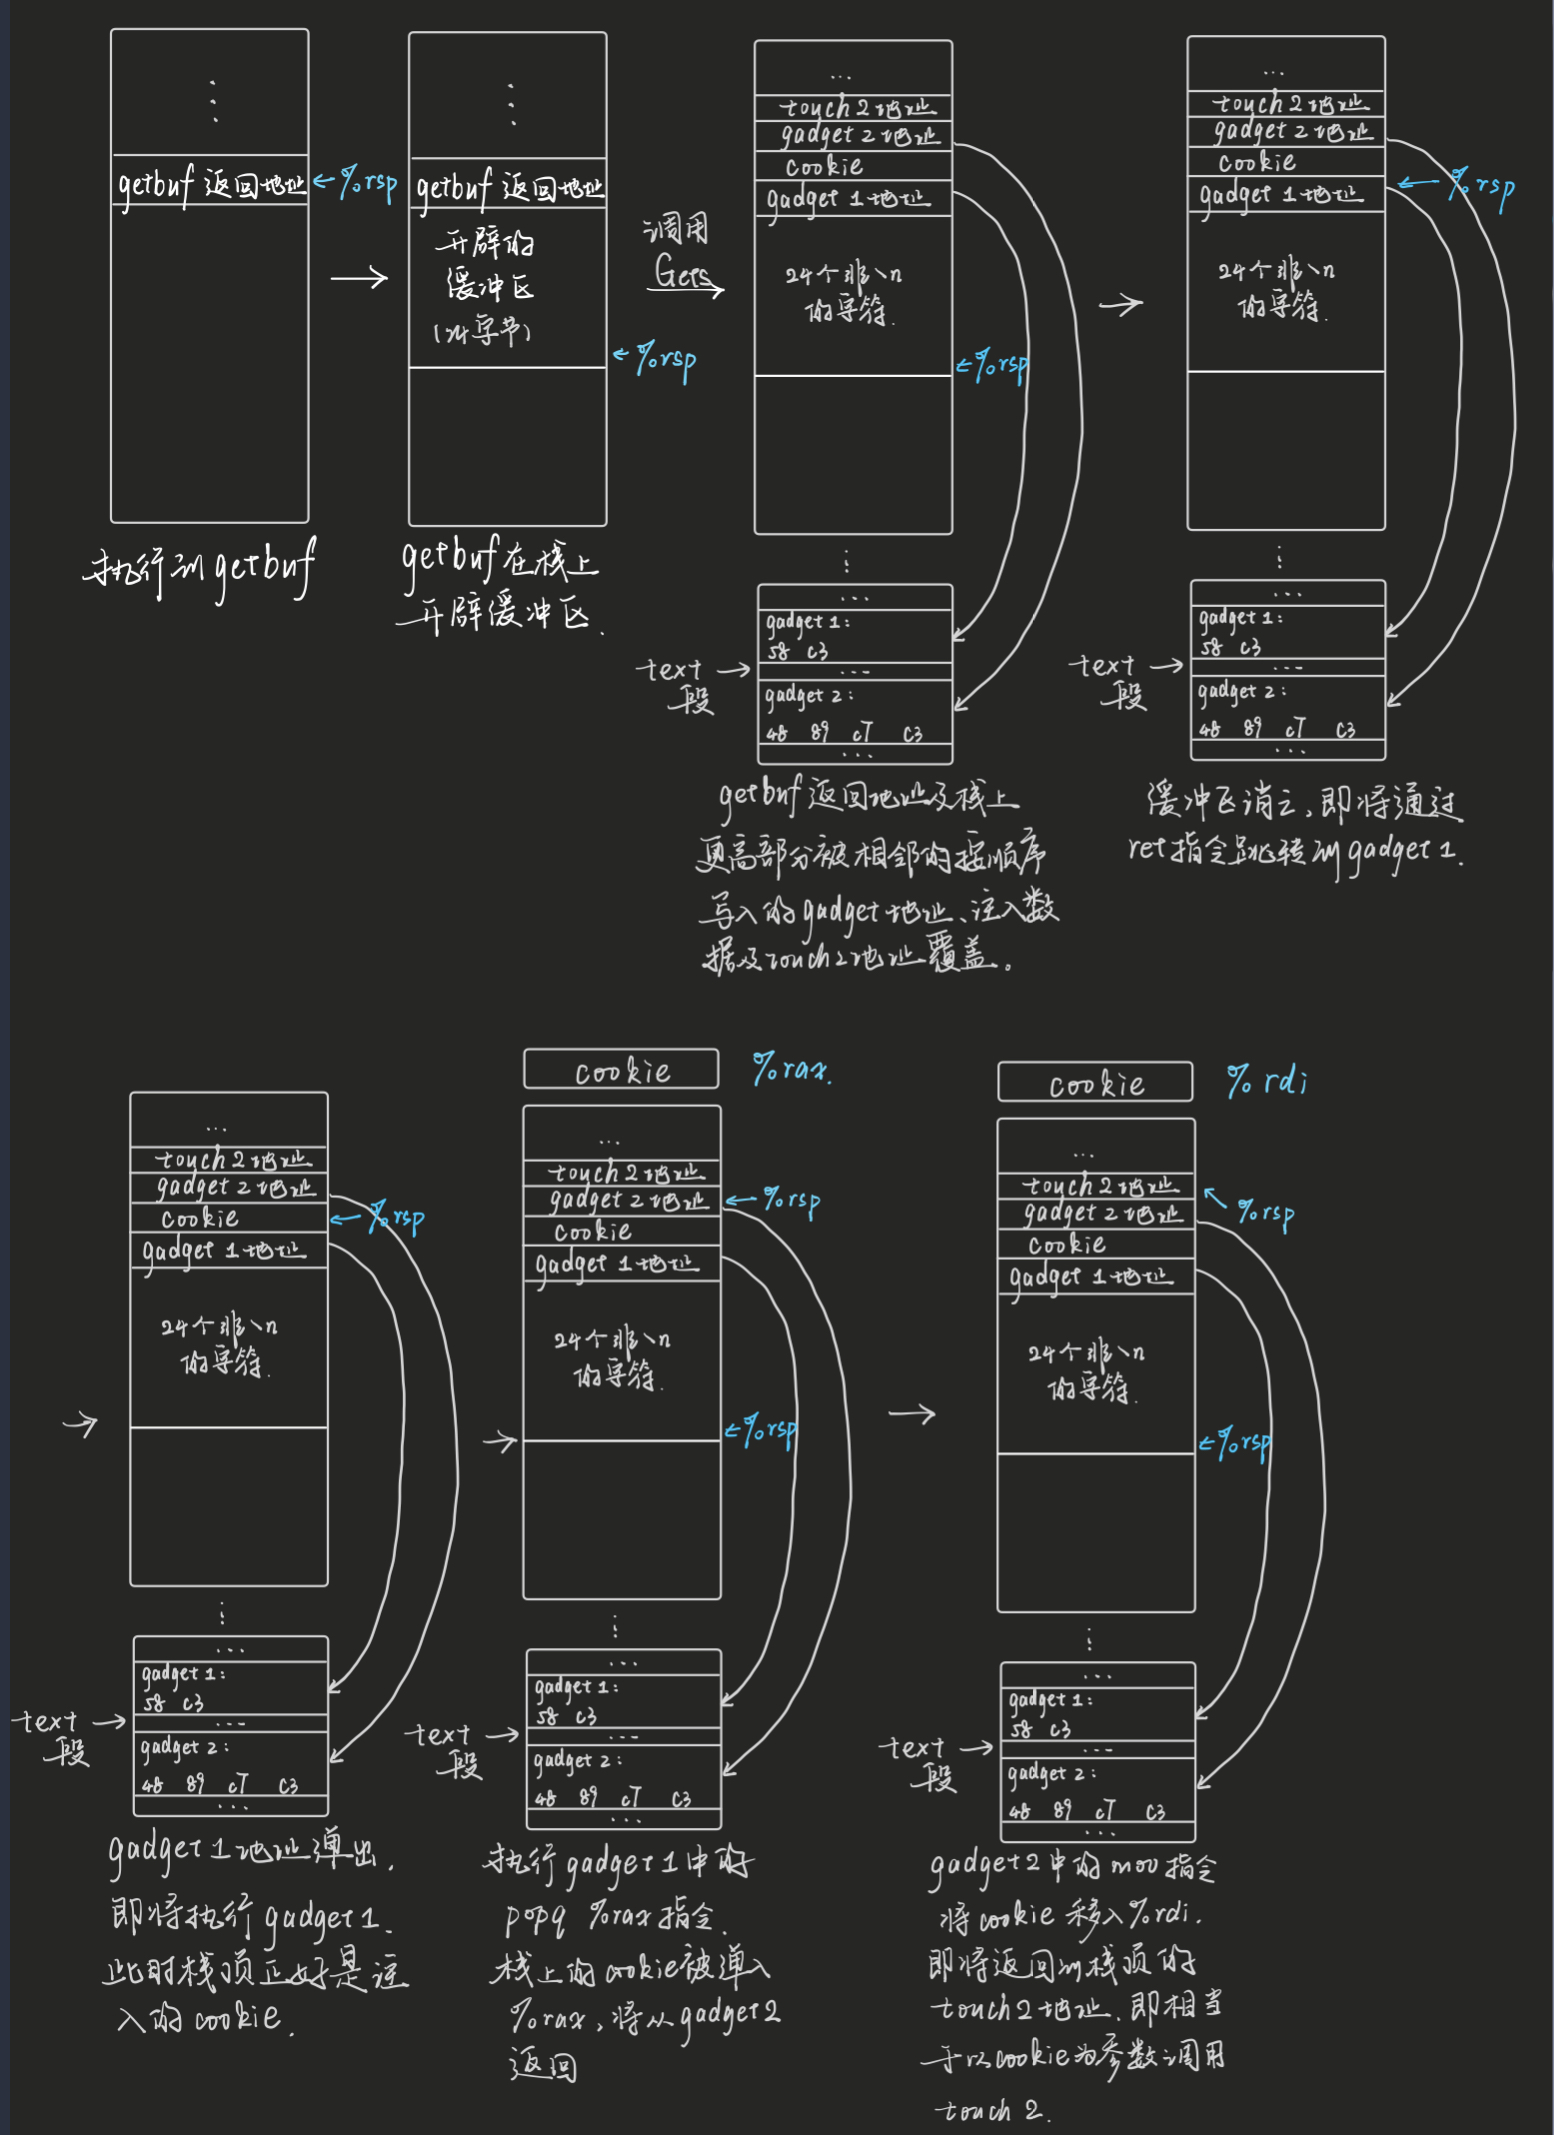 getbuf 返回地址
←%rsp
执行到getbuf
getbuf 返回地址
开辟的
缓冲区
(24字节)
←%rsp
getbuf在栈上
开辟缓冲区.
调用
Gets
...
touch2地址
gadget2地址
cookie
gadget 1地址
24个非\n
的字符.
←%rsp
...
gadget 1:
58 c3
...
gadget 2:
48 89 c7 c3
...
text
段
getbuf返回地址及栈上
更高部分被相邻的按顺序
写入的gadget地址、注入数
据及touch2地址覆盖。
...
touch2地址
gadget2地址
cookie
gadget 1地址
←%rsp
24个非\n
的字符.
...
gadget 1:
58 c3
...
gadget 2:
48 89 c7 c3
...
text
段
缓冲区消去,即将通过
ret指令跳转到gadget1.
...
touch2地址
gadget2地址
cookie
←%rsp
gadget 1地址
24个非\n
的字符.
...
gadget 1:
58 c3
...
gadget 2:
48 89 c7 c3
...
text
段
gadget1地址弹出,
即将执行gadget1.
此时栈顶正好是注
入的cookie.
cookie
%rax.
...
touch2地址
gadget2地址
←%rsp
cookie
gadget 1地址
24个非\n
的字符.
←%rsp
...
gadget 1:
58 c3
...
gadget 2:
48 89 c7 c3
...
text
段
执行gadget1中的
popq %rax指令.
栈上的cookie被弹入
%rax,将从gadget2
返回
cookie
%rdi
...
touch2地址
%rsp
gadget2地址
cookie
gadget 1地址
24个非\n
的字符.
←%rsp
...
gadget 1:
58 c3
...
gadget 2:
48 89 c7 c3
...
text
段
gadget2中的mov指令
将cookie移入%rdi.
即将返回到栈顶的
touch2地址.即相当
于以cookie为参数调用
touch2.